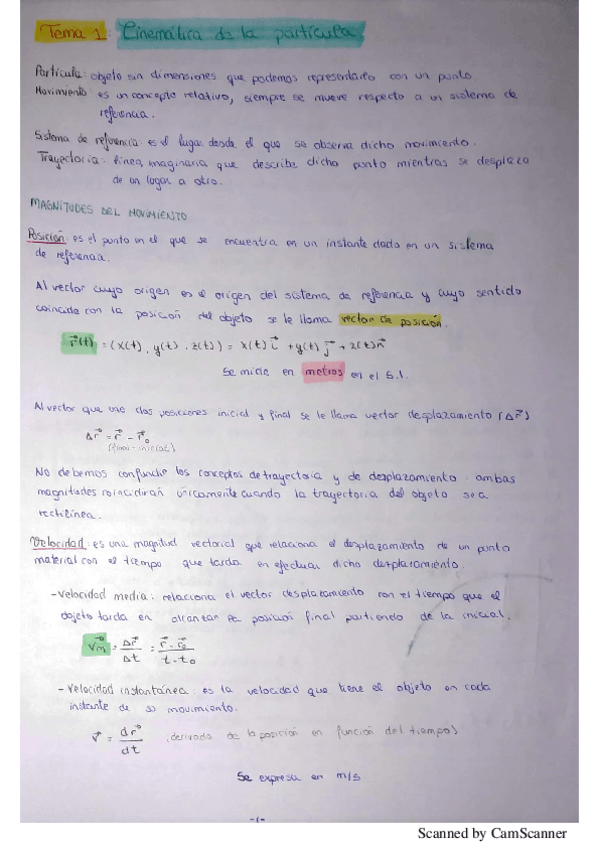 Tema 1: Cinemática de la partícula
Partícula: objeto sin dimensiones que podemos representarlo con un punto
Movimiento: es un concepto relativo, siempre se mueve respecto a un sistema de
referencia.
Sistema de referencia: es el lugar desde el que se observa dicho movimiento.
Trayectoria: línea imaginaria que describe dicho punto mientras se desplaza
de un lugar a otro.
MAGNITUDES DEL MOVIMIENTO
Posición: es el punto en el que se encuentra en un instante dado en un sistema
de referencia.
Al vector cuyo origen es el origen del sistema de referencia y cuyo sentido
coincide con la posición del objeto se le llama vector de posición.
r⃗(t) = (x(t), y(t), z(t)) = x(t) i⃗ + y(t) j⃗ + z(t) k⃗
Se mide en metros en el S.I.
Al vector que une dos posiciones inicial y final se le llama vector desplazamiento (Δr⃗)
Δr⃗ = r⃗ - r⃗₀
(final - inicial)
No debemos confundir los conceptos de trayectoria y de desplazamiento: ambas
magnitudes coincidirán únicamente cuando la trayectoria del objeto sea
rectilínea.
Velocidad: es una magnitud vectorial que relaciona el desplazamiento de un punto
material con el tiempo que tarda en efectuar dicho desplazamiento.
- Velocidad media: relaciona el vector desplazamiento con el tiempo que el
objeto tarda en alcanzar la posición final partiendo de la inicial.
v⃗m = Δr⃗/Δt = (r⃗ - r⃗₀)/(t - t₀)
- Velocidad instantánea: es la velocidad que tiene el objeto en cada
instante de su movimiento.
v⃗ = dr⃗/dt (derivada de la posición en función del tiempo)
Se expresa en m/s
-1-
Scanned by CamScanner